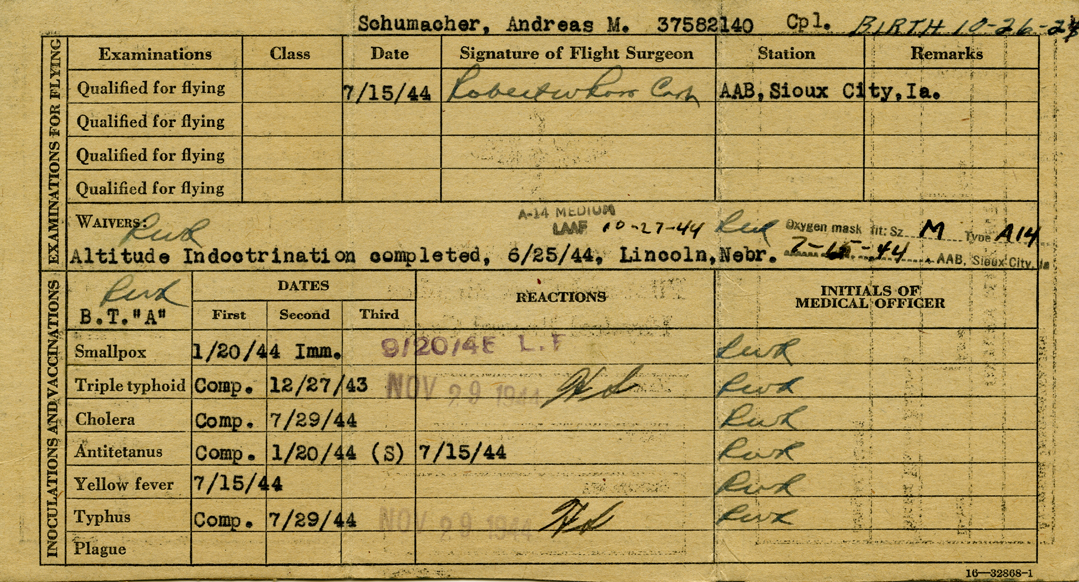 Schumacher, Andreas M. 37582140 Cpl. BIRTH 10-26-24
EXAMINATIONS FOR FLYING
Examinations Class Date Signature of Flight Surgeon Station Remarks
Qualified for flying 7/15/44 AAB, Sioux City, Ia.
Qualified for flying
Qualified for flying
Qualified for flying
WAIVERS: RWR A-14 MEDIUM LAAF 10-27-44 RWR Oxygen mask fit: Sz M Type A14
Altitude Indoctrination completed, 6/25/44, Lincoln, Nebr. AAB, Sioux City, Ia
INOCULATIONS AND VACCINATIONS
RWR
B.T."A"
DATES REACTIONS INITIALS OF MEDICAL OFFICER
First Second Third
Smallpox 1/20/44 Imm. 9/20/4E L.F RWR
Triple typhoid Comp. 12/27/43 NOV 29 1944 RWR
Cholera Comp. 7/29/44 RWR
Antitetanus Comp. 1/20/44 (S) 7/15/44 RWR
Yellow fever 7/15/44 RWR
Typhus Comp. 7/29/44 NOV 29 1944 RWR
Plague
16—32868-1